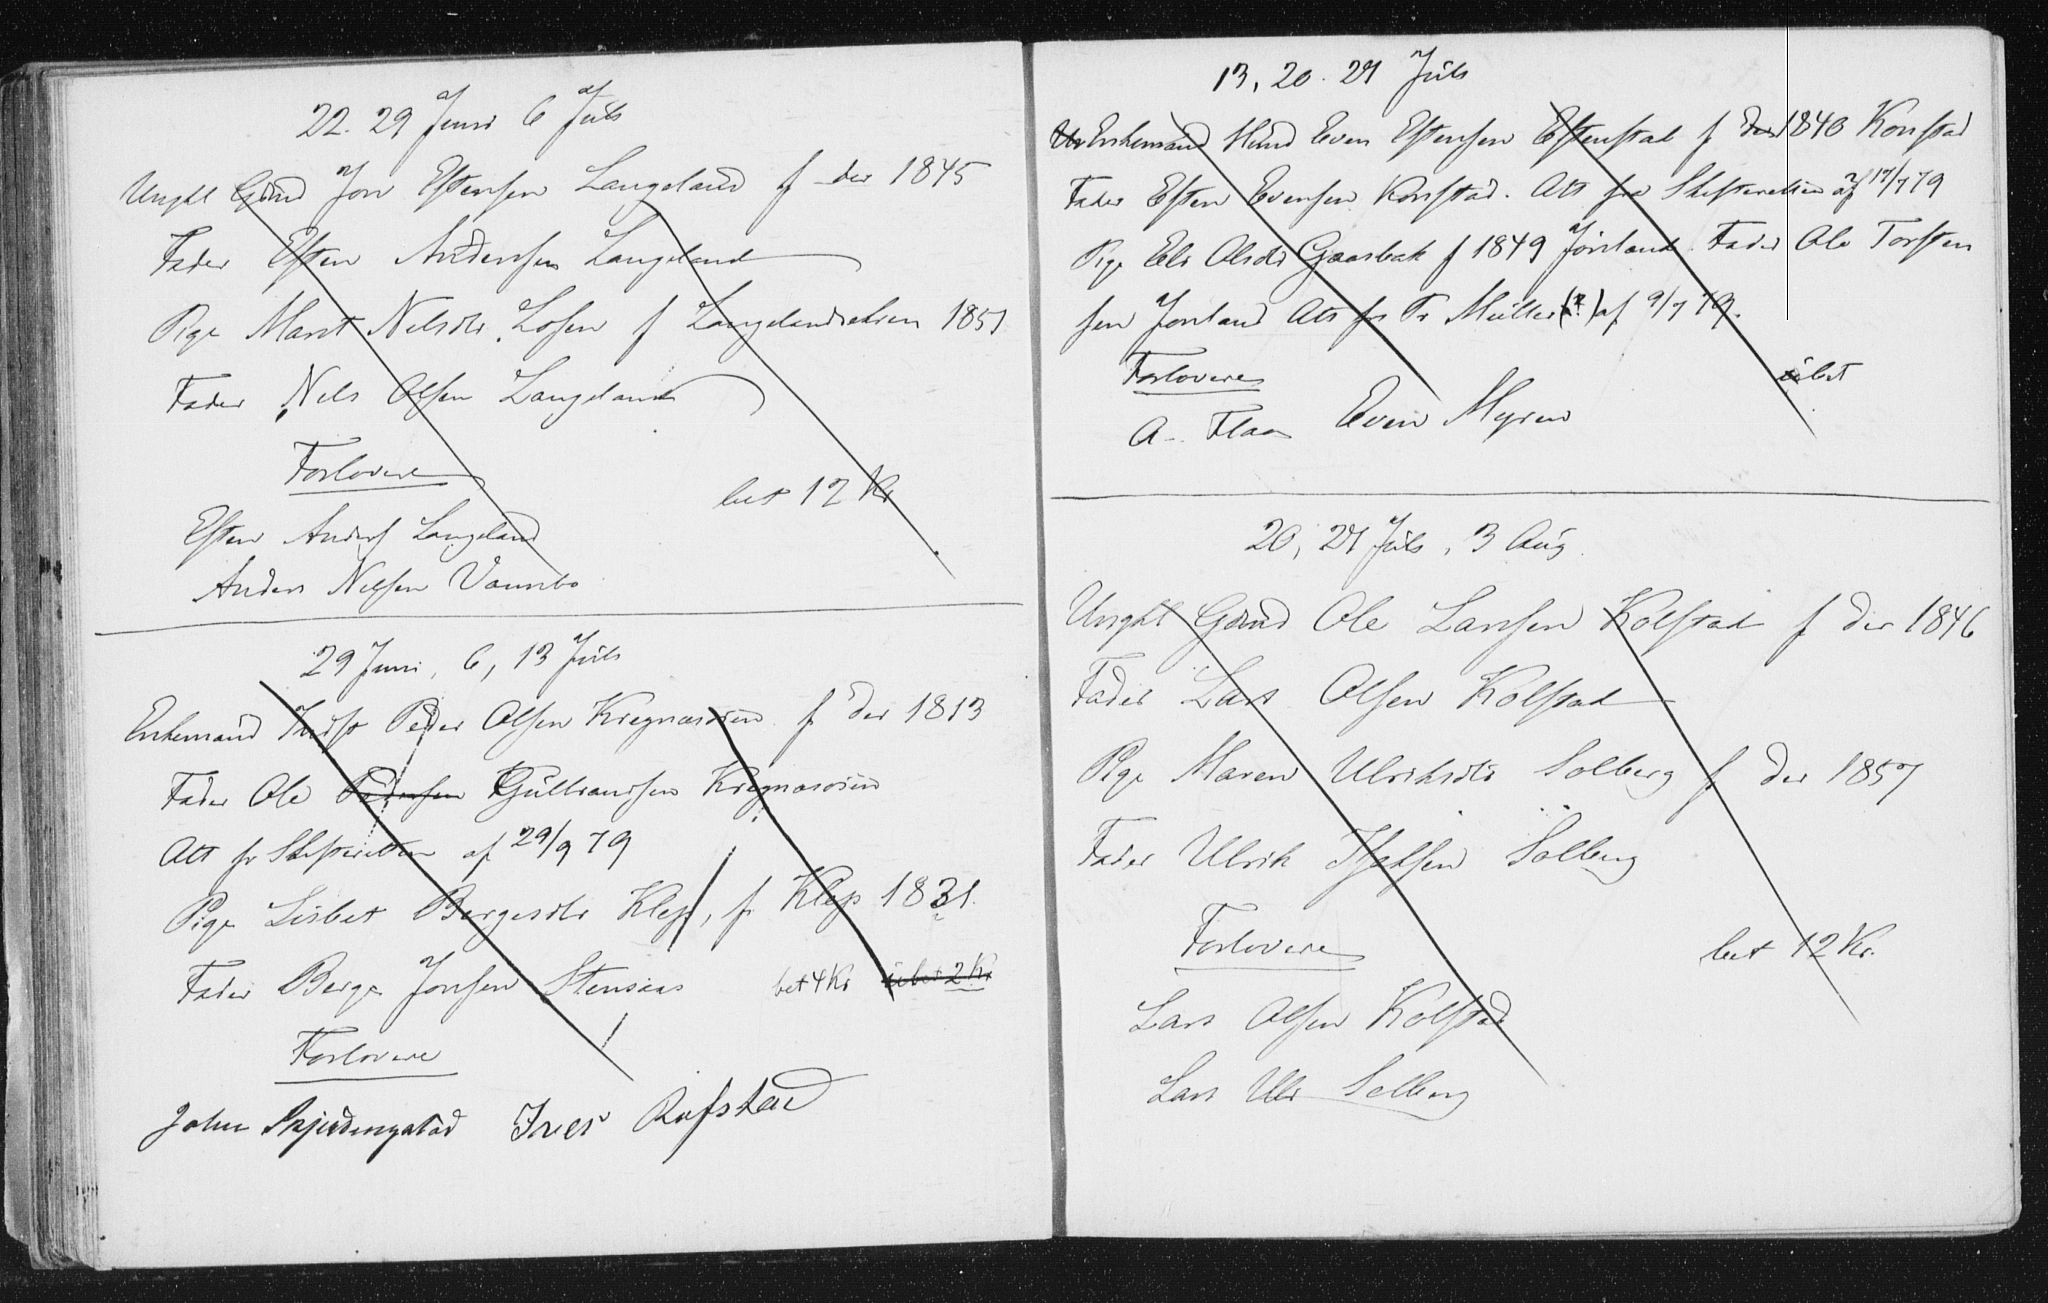 22. 29 Juni 6 Juli
Ungkl Gdmd Jon Estensen Langeland f der 1845
Fader Esten Andersen Langeland
Pige Marit Nelsdtr Losen f Langelandsekren 1851
Fader Nels Olsen Langeland
Forlovere
bet 12 Kr
Esten Anders Langeland
Anders Nelsen Vannbo
29 Juni, 6, 13 Juli
Enkemand Indst Peder Olsen Kregnæsøien f der 1813
Fader Ole Pedersen Gulbrandsen Kregnæsøien
Att fr Skifteretten af 29/9 79
Pige Lisbet Bergesdtr Klep, f Klep 1831.
Fader Berge Jonsen Stensaas bet 4 Kr ubet 2 Kr
Forlovere
John Skjerdingstad Iver Rofstad
13, 20. 27 Juli
Enkemand Hmd Even Estensen Estenstad f der 1840 Konstad
Fader Esten Evensen Konstad. Att fra Skifteretten af 17/7 79
Pige Eli Olsdtr Gaasbak f 1849 Jonland Fader Ole Torsten
sen Jonland Att fr Pr Müller (?) af 9/7 79.
Forlovere
ubet
A. Flaa Even Myren
20, 27 Juli, 3 Aug.
Ungkl Gdmd Ole Larsen Kolstad f der 1846
Fader Lars Olsen Kolstad
Pige Maren Ulriksdtr Solberg f der 1857
Fader Ulrik Solberg
Forlovere
bet 12 Kr.
Lars Olsen Kolstad
Lars Ulr Solberg